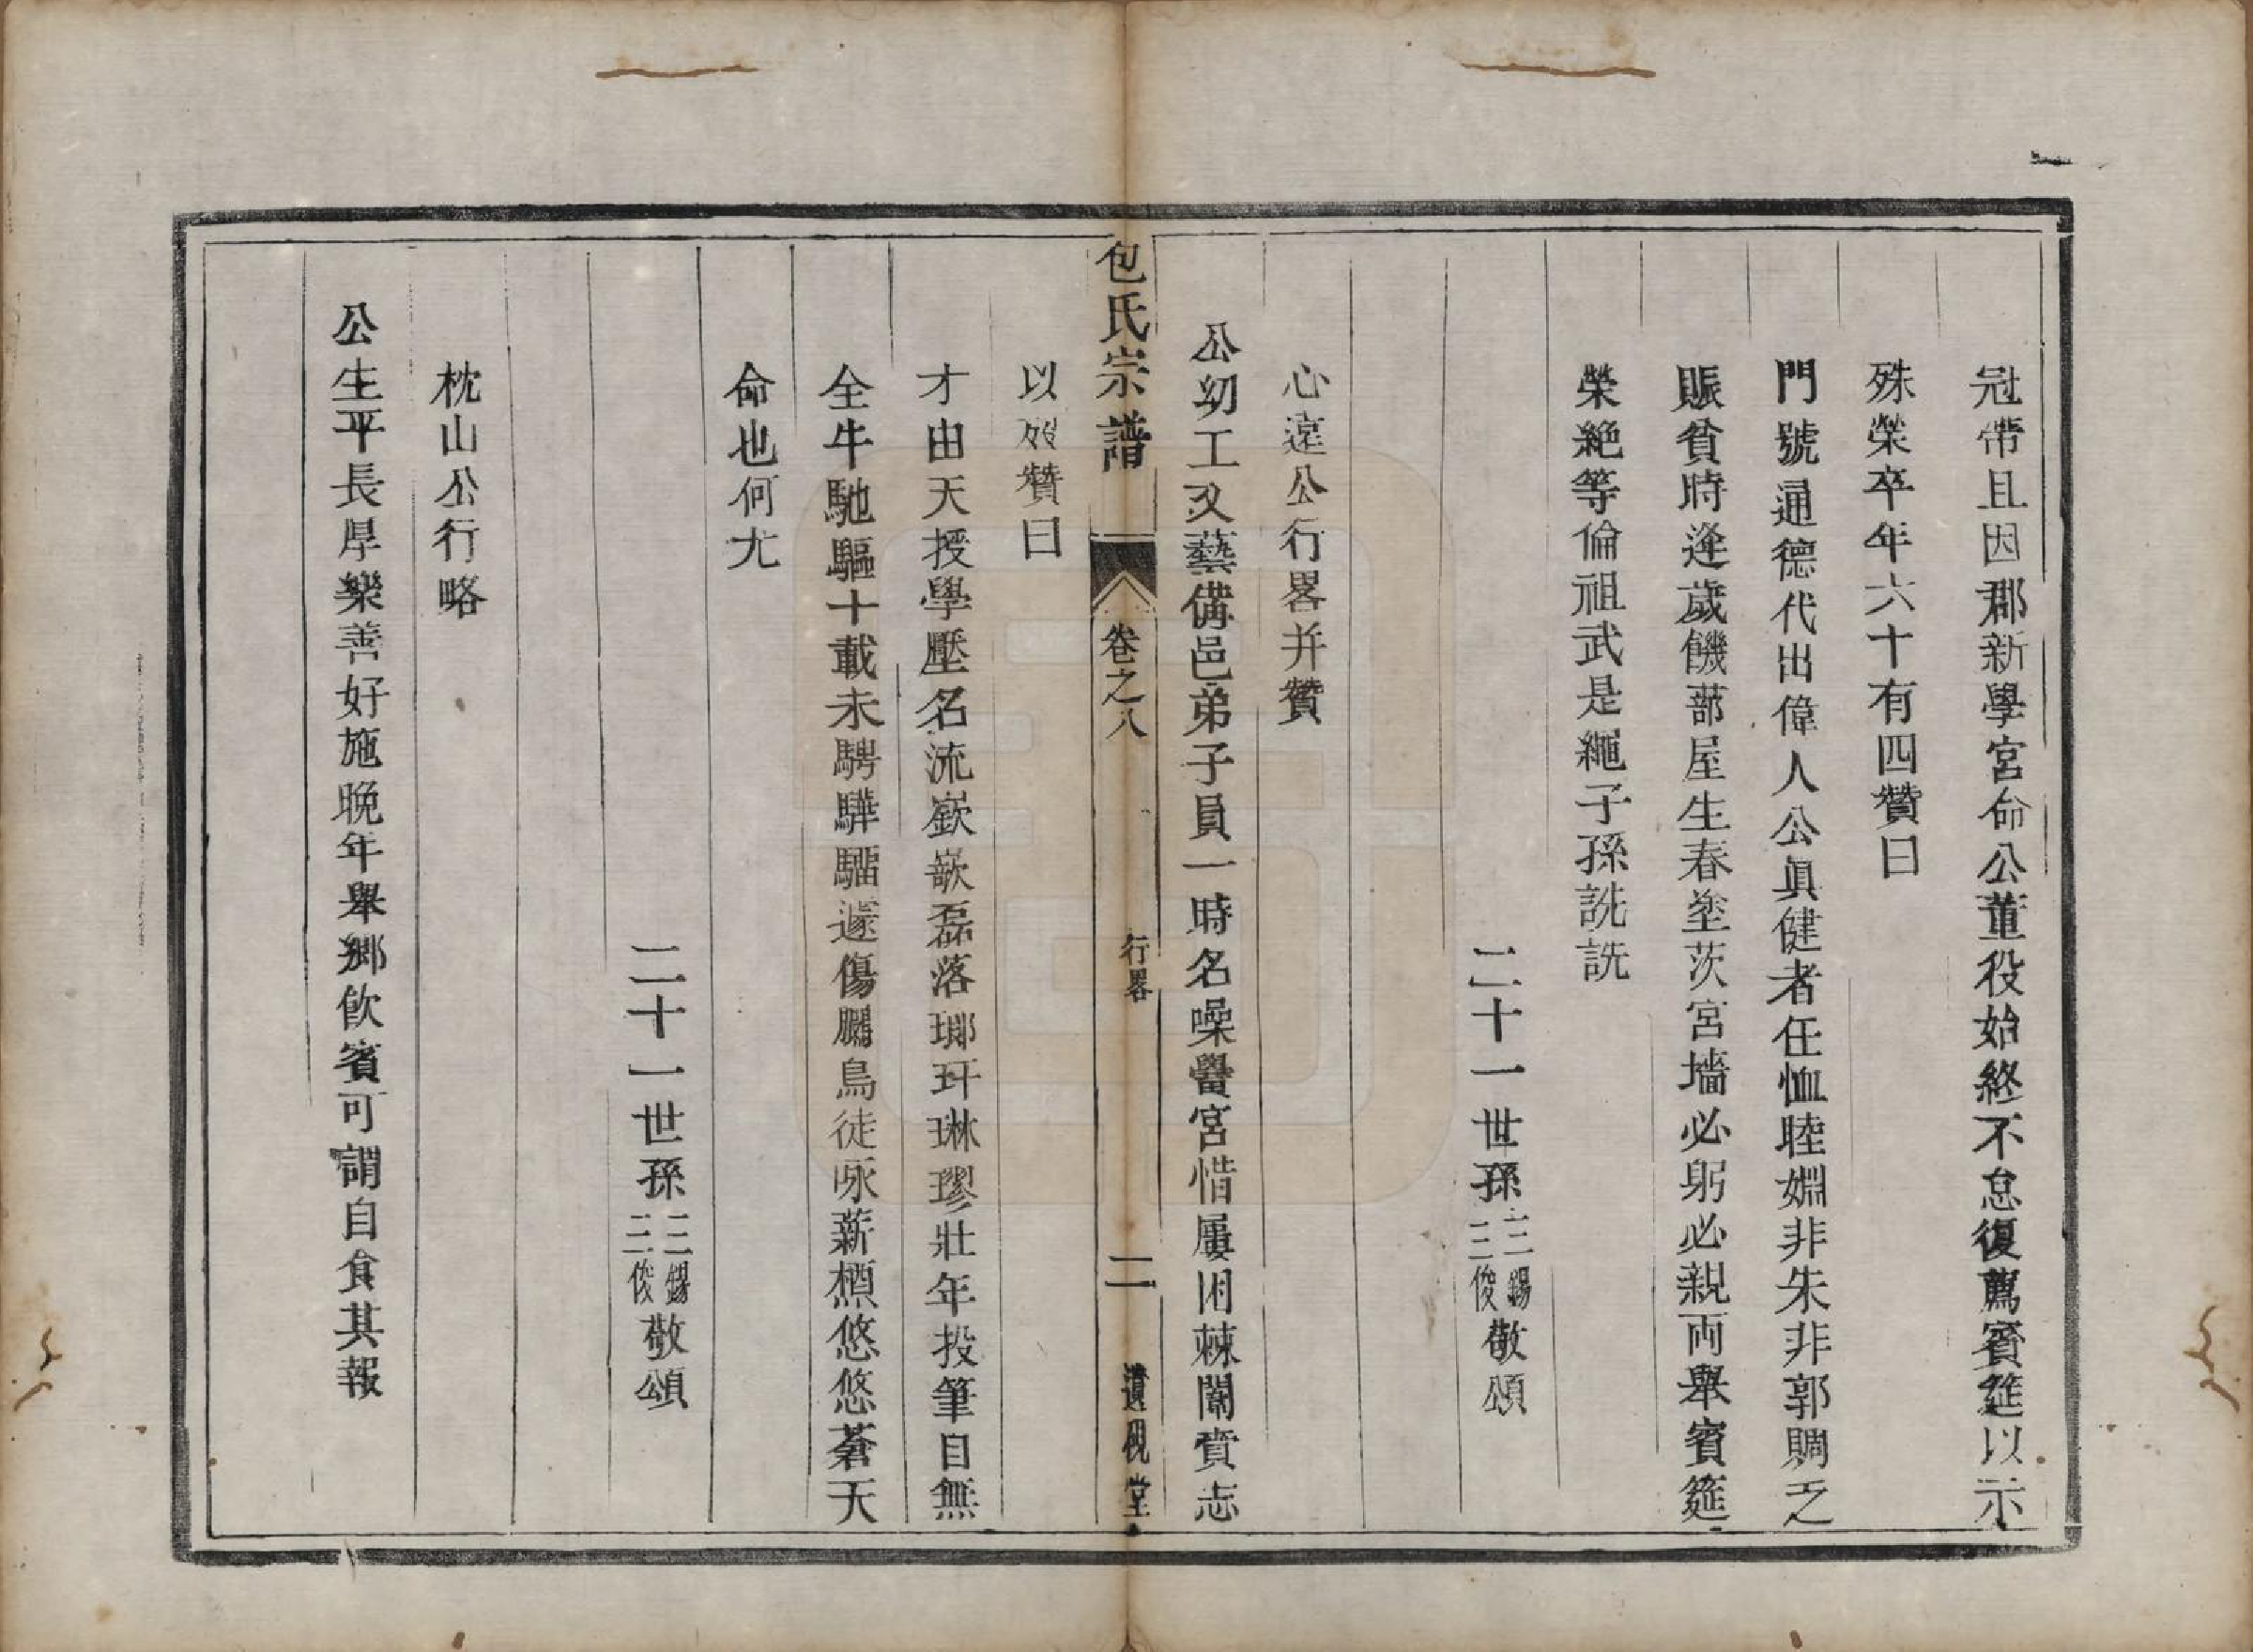 冠帶且因郡新學宮命公董役始終不怠復薦賓筵以示
殊榮卒年六十有四贊曰
門號通德代出偉人公眞健者任恤睦婣非朱非郭賙乏
賑貧時逢歲饑蔀屋生春塗茨宮墻必躬必親両舉賓筵
榮絶等倫祖武是繩子孫詵詵
二十一世孫三錫三俊敬頌
心遠公行畧并贊
公幼工文藝備邑弟子員一時名噪黌宮惜屢困棘闈賫志
包氏宗譜 卷之八 行畧 二 遺硯堂
以歿贊曰
才由天授學壓名流嶔嶔磊落瑯玕琳璆壯年投筆目無
全牛馳驅十載未騁驊騮遽傷鵩鳥徒咏薪槱悠悠蒼天
命也何尤
二十一世孫三錫三俊敬頌
枕山公行略
公生平長厚樂善好施晚年舉鄉飲賓可謂自食其報